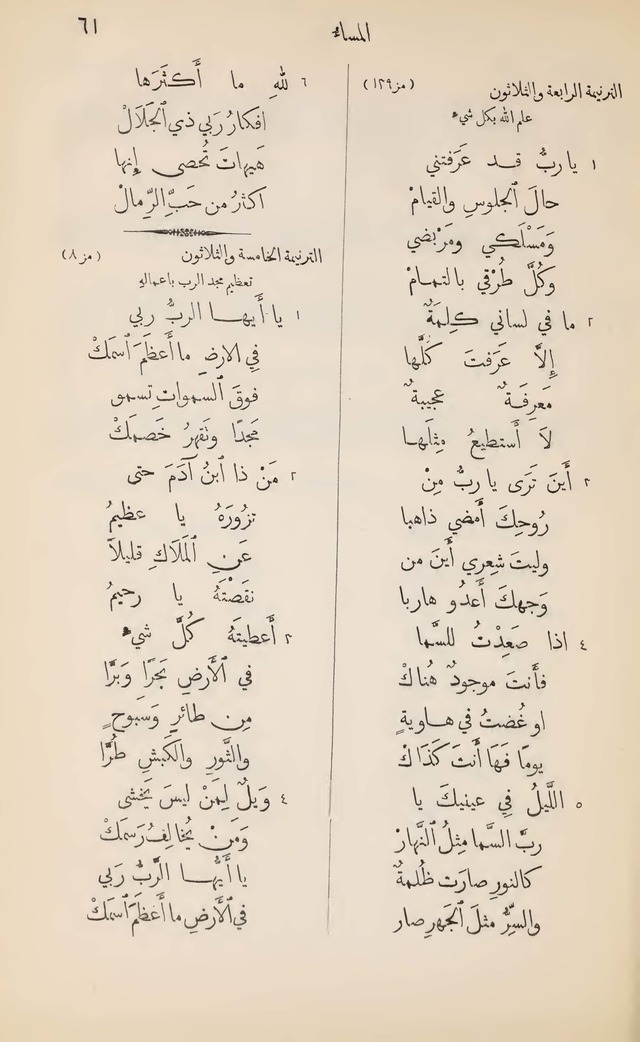 المساء
٦١
الترنيمة الرابعة والثلاثون (مز ١٣٩)
علم الله بكل شيء
١ يا ربُّ قد عَرَفتني
حالَ ٱلجلوسِ والقيامْ
وَمَسْلَكي ومَرْبضي
وكُلَّ طُرْقي بالتمامْ
٢ ما في لساني كَلِمَةٌ
إِلاَّ عَرَفتَ كُلَّها
مَعرِفَةٌ عجيبةٌ
لاَ أَستطيعُ مِثلَها
٣ أَينَ تَرَى يا ربُّ مِنْ
رُوحِكَ أَمضي ذاهبا
وليتَ شِعري أَينَ من
وَجهكَ أَعدُو هاربا
٤ اذا صَعِدْتُ للسَّما
فأَنتَ موجودٌ هُناكْ
او غُصتُ في هاويةٍ
يومًا فَهَا أَنتَ كَذَاكْ
٥ اللَّيلُ فِي عينيكَ يا
ربَّ السَّما مِثلُ ٱلنَّهارْ
كالنورِ صارَت ظُلمةٌ
والسِّرُّ مثلَ ٱلجَهرِ صار
٦ للهِ ما أَكثَرَها
افكارُ رَبي ذي ٱلجَلَالْ
هَيهاتَ تُحصى إِنها
اكثرُ من حَبِّ الرِّمالْ
الترنيمة الخامسة والثلاثون (مز ٨)
تعظيم مجد الرب باعماله
١ يا أَيها الربُّ ربي
فِي الارضِ ما أَعظَمَ ٱسمَكْ
فوقَ ٱلسمواتِ تسمو
مجدًا وتَقهرُ خَصمَكْ
٢ مَنْ ذا ٱبنُ آدَمَ حتى
تزُورَهُ يا عظيمُ
عَنِ ٱلمَلَاكِ قليلاً
نقَصْتَهُ يا رحيمُ
٣ أَعطيتَهُ كُلَّ شيءٍ
في ٱلأَرضِ بَحرًا وَبَرًّا
مِن طائرٍ وَسَبوحٍ
والثَّورِ والكَبشِ طُرًّا
٤ وَيلٌ لِمَنْ ليسَ يَخشى
وَمَنْ يُخالِفُ رَسمَكْ
يا أَيُّها الرَّبُّ رَبي
في ٱلأَرضِ ما أَعظَمَ ٱسمَكْ